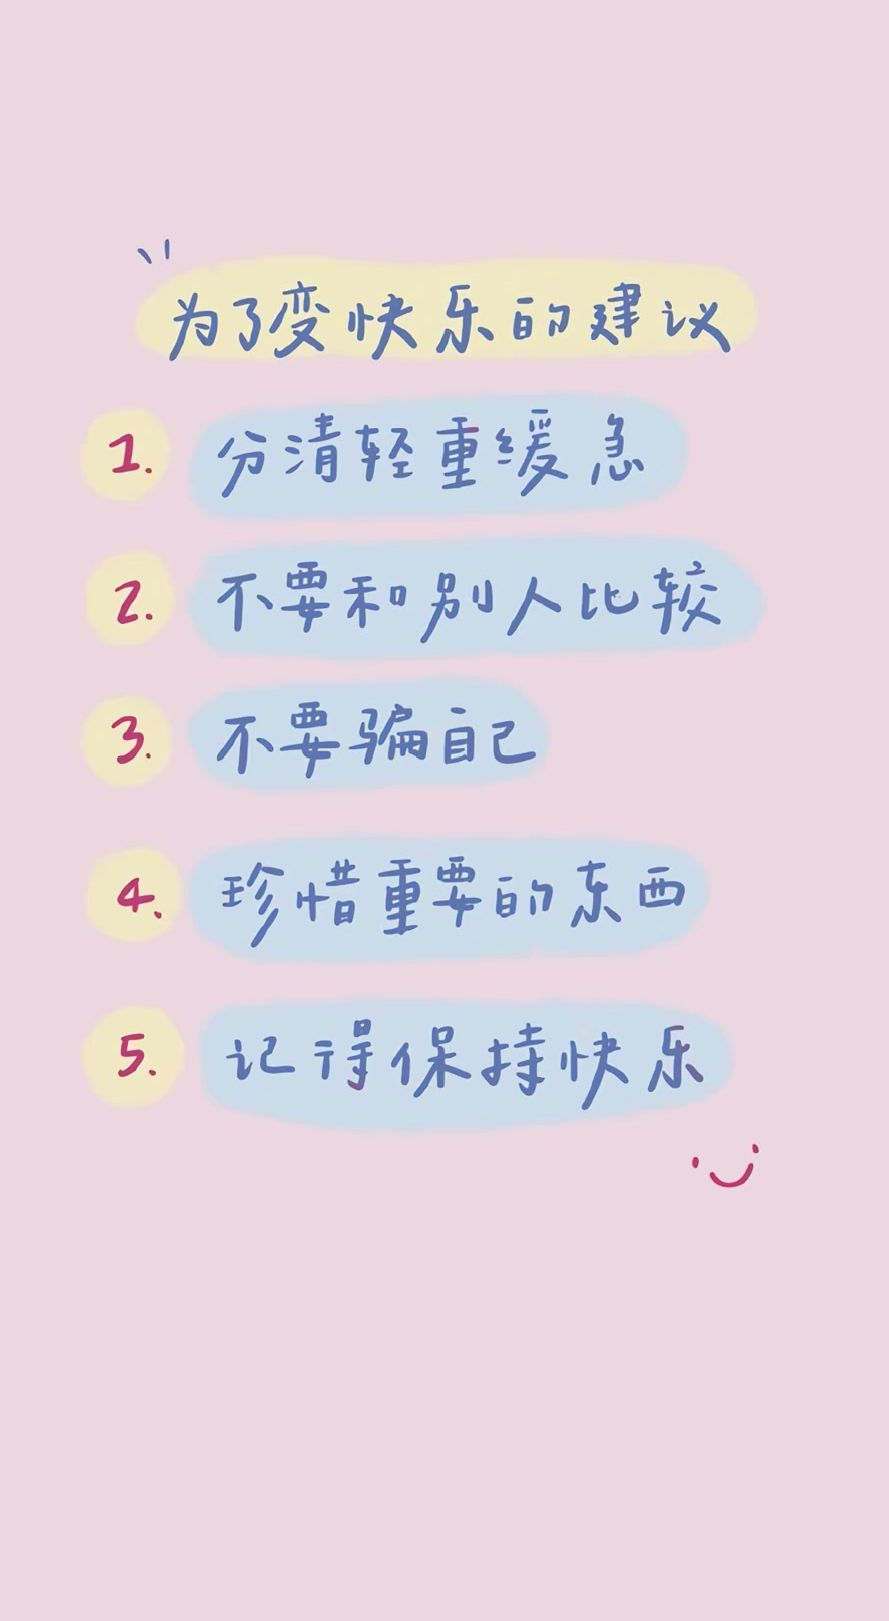 为了变快乐的建议
1. 分清轻重缓急
2. 不要和别人比较
3. 不要骗自己
4. 珍惜重要的东西
5. 记得保持快乐